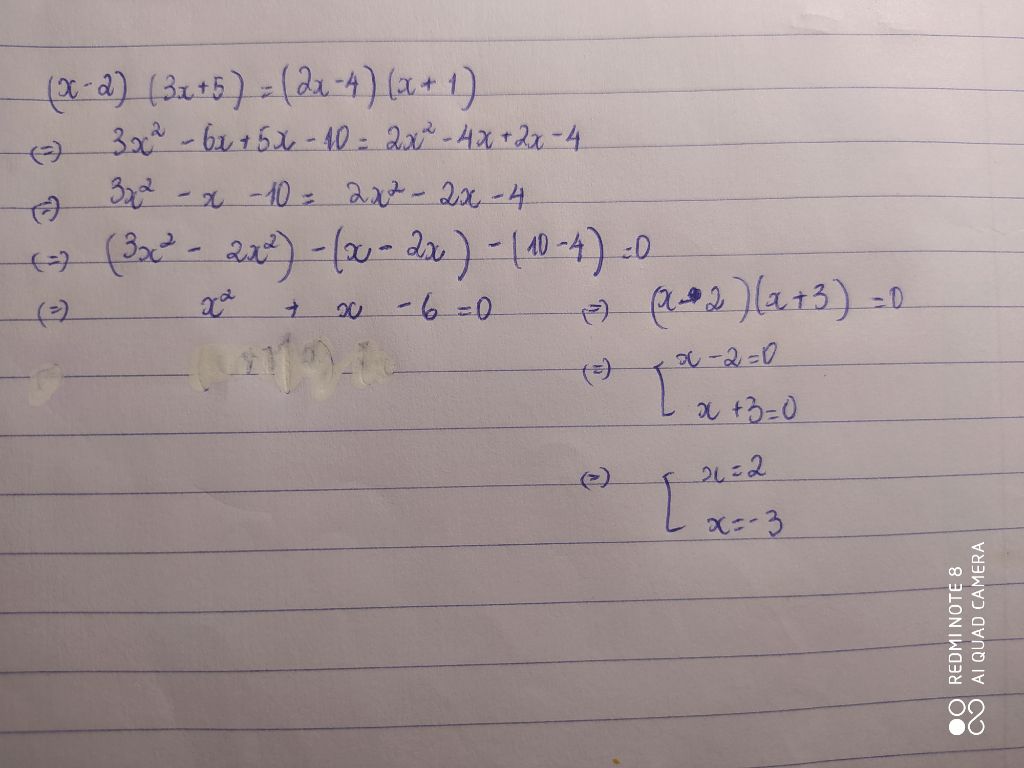 (x-2) (3x+5) = (2x-4) (x+1)
(=) 3x² - 6x + 5x - 10 = 2x² - 4x + 2x - 4
(=) 3x² - x - 10 = 2x² - 2x - 4
(=) (3x² - 2x²) - (x - 2x) - (10 - 4) = 0
(=) x² + x - 6 = 0 (=) (x - 2)(x + 3) = 0
(=) [ x - 2 = 0
x + 3 = 0
(=) [ x = 2
x = -3
REDMI NOTE 8
AI QUAD CAMERA